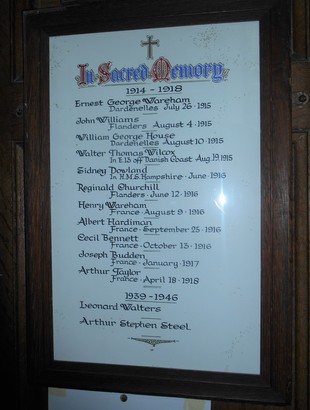 In Sacred Memory
1914 - 1918
Ernest George Wareham
Dardenelles July 26 · 1915
John Williams
Flanders August 4 · 1915
William George House
Dardenelles August 10 · 1915
Walter Thomas Wilcox
In E.13 off Danish Coast Aug. 19 1915
Sidney Dowland
In H.M.S. Hampshire · June · 1916
Reginald Churchill
Flanders · June 12 · 1916
Henry Wareham
France · August 9 · 1916
Albert Hardiman
France · September 25 · 1916
Cecil Bennett
France · October 13 · 1916
Joseph Budden
France · January · 1917
Arthur Taylor
France · April 18 · 1918
1939 - 1946
Leonard Walters
Arthur Stephen Steel